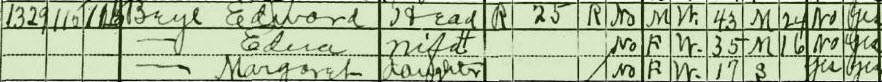 1329 115 Beyl Edward Head R 25 R No M W. 43 M 24 No Yes
— Edna wife H No F W. 35 M 16 No Yes
— Margaret daughter No F W. 17 S Yes Yes